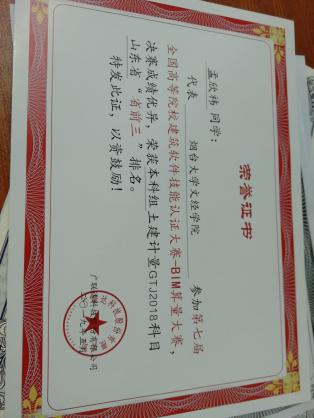 荣誉证书
孟欣祎 同学：
代表 烟台大学文经学院 参加第七届
全国高等院校建筑软件技能认证大赛-BIM算量大赛，
决赛成绩优异，荣获本科组土建计量GTJ2018科目
山东省“省前三”排名。
特发此证，以资鼓励！
广联达科技股份有限公司